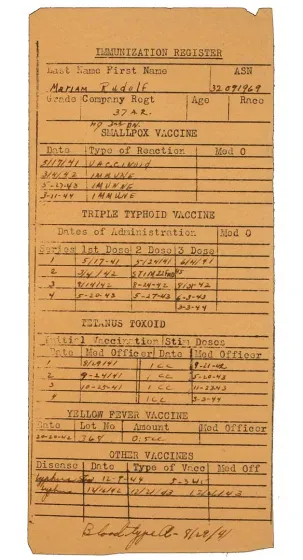 IMMUNIZATION REGISTER
Last Name First Name ASN
Mariam Rudolf 32091969
Grade Company Regt Age Race
37 A.R.
Hq 2nd Bn.
SMALLPOX VACCINE
Date Type of Reaction Med O
5/17/41 VACCINOID
3/4/42 IMMUNE
5-27-43 IMMUNE
3-11-44 IMMUNE
TRIPLE TYPHOID VACCINE
Dates of Administration Med O
Series 1st Dose 2 Dose 3 Dose
1 5/17-41 5/24/41 6/4/41
2 3/4/42 STIM
3 8/14/42 8-24-42 9/5-42
4 5-20-43 5-27-43 6-3-43
3-3-44
TETANUS TOXOID
Initial Vaccination Stim Doses
Date Med Officer Date Med Officer
1 8/29/41 1 CC 9-21-42
2 9-24/41 1 CC 5-20-43
3 10-25-41 1 CC 11-23-43
4 1 CC 3-3-44
YELLOW FEVER VACCINE
Date Lot No Amount Med Officer
367 0.5cc
OTHER VACCINES
Disease Date Type of Vacc Med Off
12-9-44
Typhus 12/21/43
Blood type A- 8/29/41